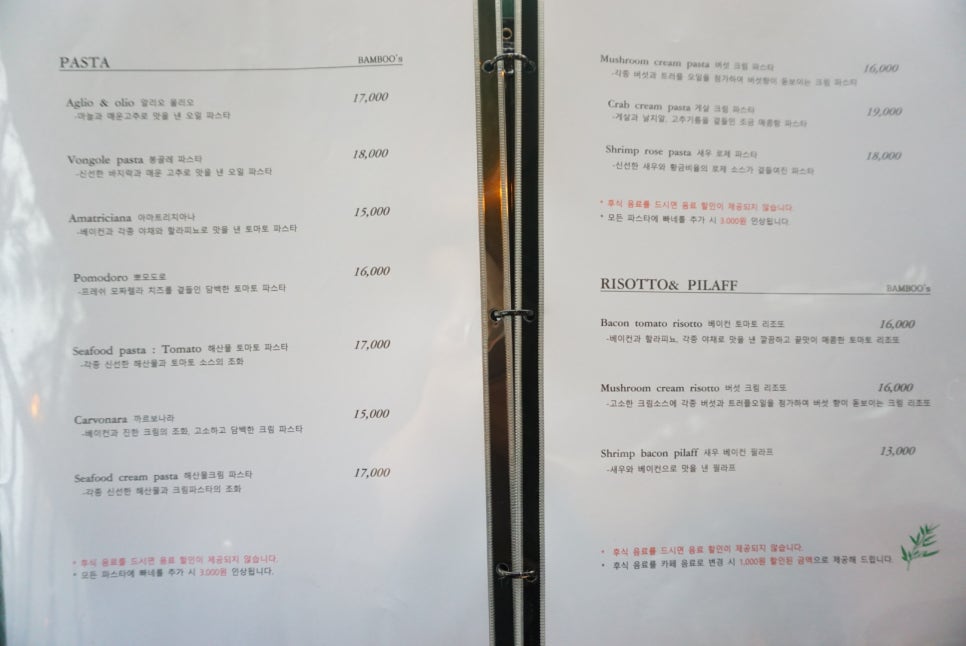 PASTA BAMBOO's
Aglio & olio 알리오 올리오 17,000
-마늘과 매운고추로 맛을 낸 오일 파스타
Vongole pasta 봉골레 파스타 18,000
-신선한 바지락과 매운 고추로 맛을 낸 오일 파스타
Amatriciana 아마트리치아나 15,000
-베이컨과 각종 야채와 할라피뇨로 맛을 낸 토마토 파스타
Pomodoro 뽀모도로 16,000
-프레쉬 모짜렐라 치즈를 곁들인 담백한 토마토 파스타
Seafood pasta : Tomato 해산물 토마토 파스타 17,000
-각종 신선한 해산물과 토마토 소스의 조화
Carvonara 까르보나라 15,000
-베이컨과 진한 크림의 조화, 고소하고 담백한 크림 파스타
Seafood cream pasta 해산물크림 파스타 17,000
-각종 신선한 해산물과 크림파스타의 조화
* 후식 음료를 드시면 음료 할인이 제공되지 않습니다.
* 모든 파스타에 빠네를 추가 시 3,000원 인상됩니다.
Mushroom cream pasta 버섯 크림 파스타 16,000
-각종 버섯과 트러플 오일을 첨가하여 버섯향이 돋보이는 크림 파스타
Crab cream pasta 게살 크림 파스타 19,000
-게살과 날치알, 고추기름을 곁들인 조금 매콤함 파스타
Shrimp rose pasta 새우 로제 파스타 18,000
-신선한 새우와 황금비율의 로제 소스가 곁들여진 파스타
* 후식 음료를 드시면 음료 할인이 제공되지 않습니다.
* 모든 파스타에 빠네를 추가 시 3,000원 인상됩니다.
RISOTTO& PILAFF BAMBOO's
Bacon tomato risotto 베이컨 토마토 리조또 16,000
-베이컨과 할라피뇨, 각종 야채로 맛을 낸 깔끔하고 끝맛이 매콤한 토마토 리조또
Mushroom cream risotto 버섯 크림 리조또 16,000
-고소한 크림소스에 각종 버섯과 트러플오일을 첨가하여 버섯 향이 돋보이는 크림 리조또
Shrimp bacon pilaff 새우 베이컨 필라프 13,000
-새우와 베이컨으로 맛을 낸 필라프
* 후식 음료를 드시면 음료 할인이 제공되지 않습니다.
* 후식 음료를 카페 음료로 변경 시 1,000원 할인된 금액으로 제공해 드립니다.